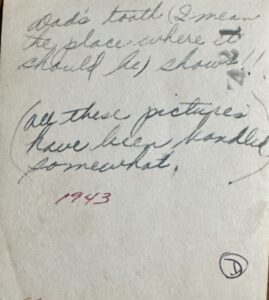 Dad's tooth (I mean
the place where it
should be) shows!!
(all these pictures
have been handled
somewhat.
1943
D